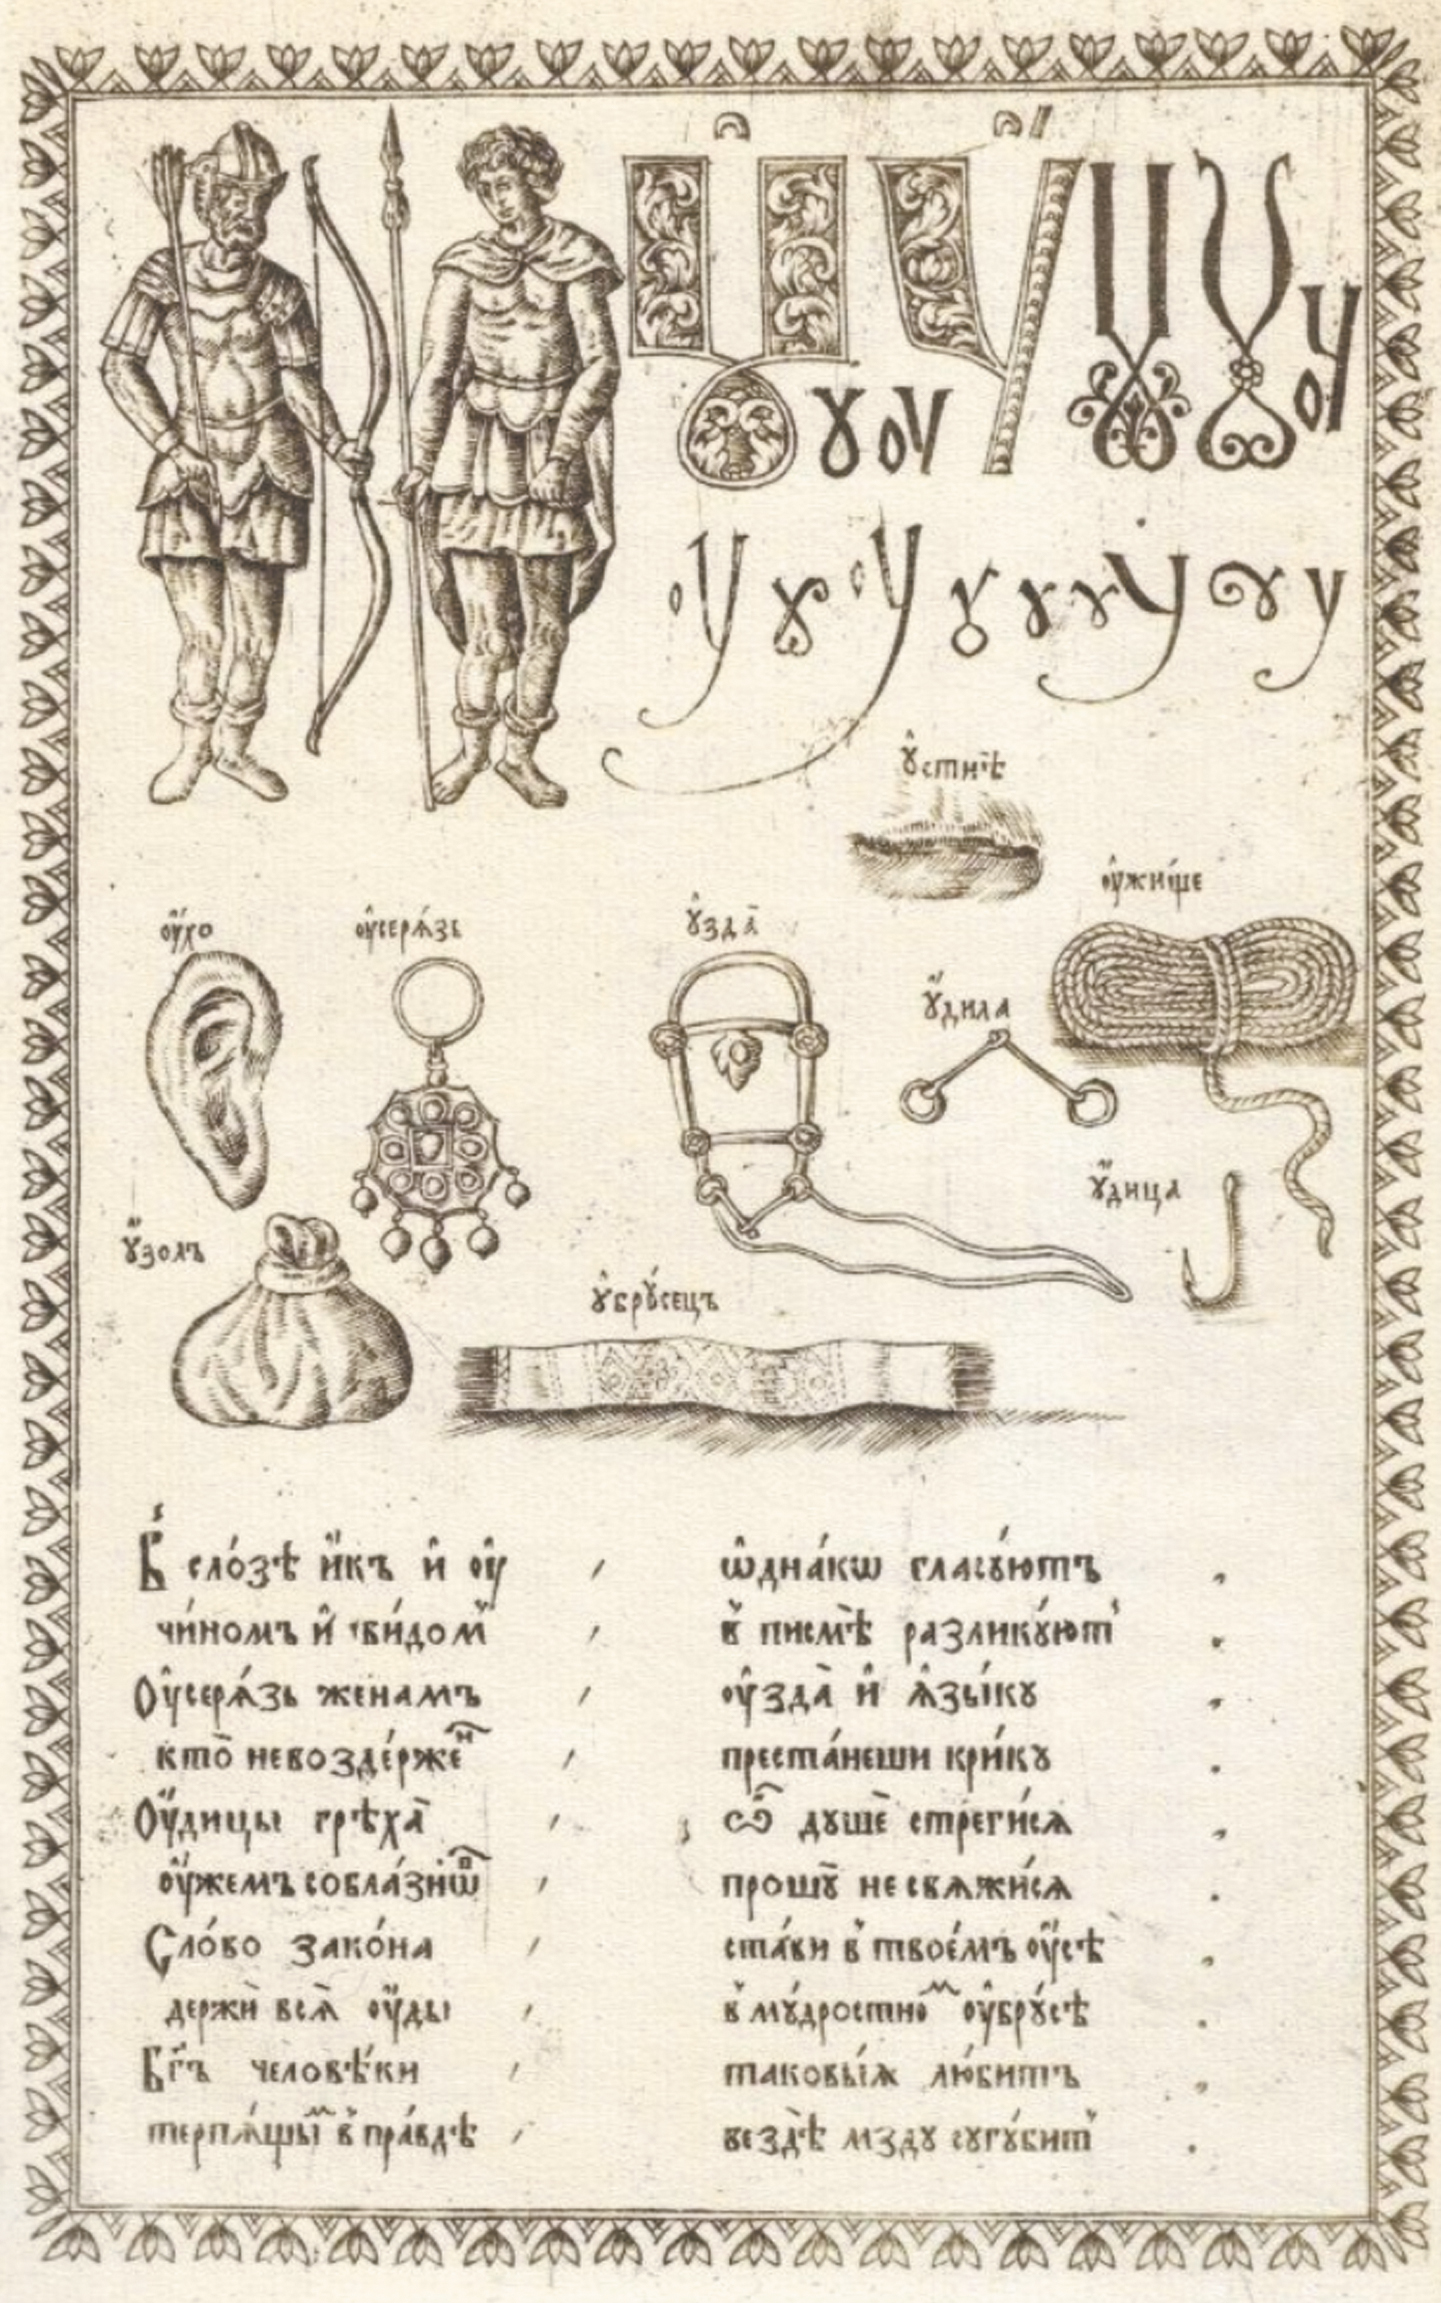 ꙋ оу
оу
оу ꙋ оу ꙋ ꙋ ꙋ у ꙋ у
ꙋ҆стнѣ̀
оу҆́жище
оу҆́хо
оу҆серѧ́зь
ꙋ҆зда̀
ꙋ҆́дила
ꙋ҆́дица
ꙋ҆́золъ
ꙋ҆брꙋ́сецъ
В̾ сло́зѣ и҆́къ и҆ оу҆ , ѡ҆дна́кѡ гласꙋ́ютъ .
чи́номъ и҆ ви́дом̾ , в̾ писмѣ̀ разликꙋ́ют̾ .
Оу҆серѧ́зь женамъ , оу҆зда̀ и҆ ѧ҆зы́кꙋ .
кто̀ невоздержеⷩ҇ , преста́неши кри́кꙋ .
Оу҆́дицы грѣха̀ , ѿ дꙋшѐ стрегі́сѧ .
оу҆́жемъ собла́знѡⷡ҇ , прошꙋ̀ несвѧжи́сѧ .
Сло́во зако́на , ста́ви в̾ твое́мъ оу҆́сѣ .
держѝ всѧ̀ оу҆́ды , в̾ мꙋ́дростноⷨ оу҆брꙋ́сѣ .
Бг҃ъ человѣ́ки , таковы́ѧ лю́битъ .
терпѧ́щыⷨ в̾ пра́вдѣ , вездѣ̀ мздꙋ сꙋгꙋ́бит̾ .